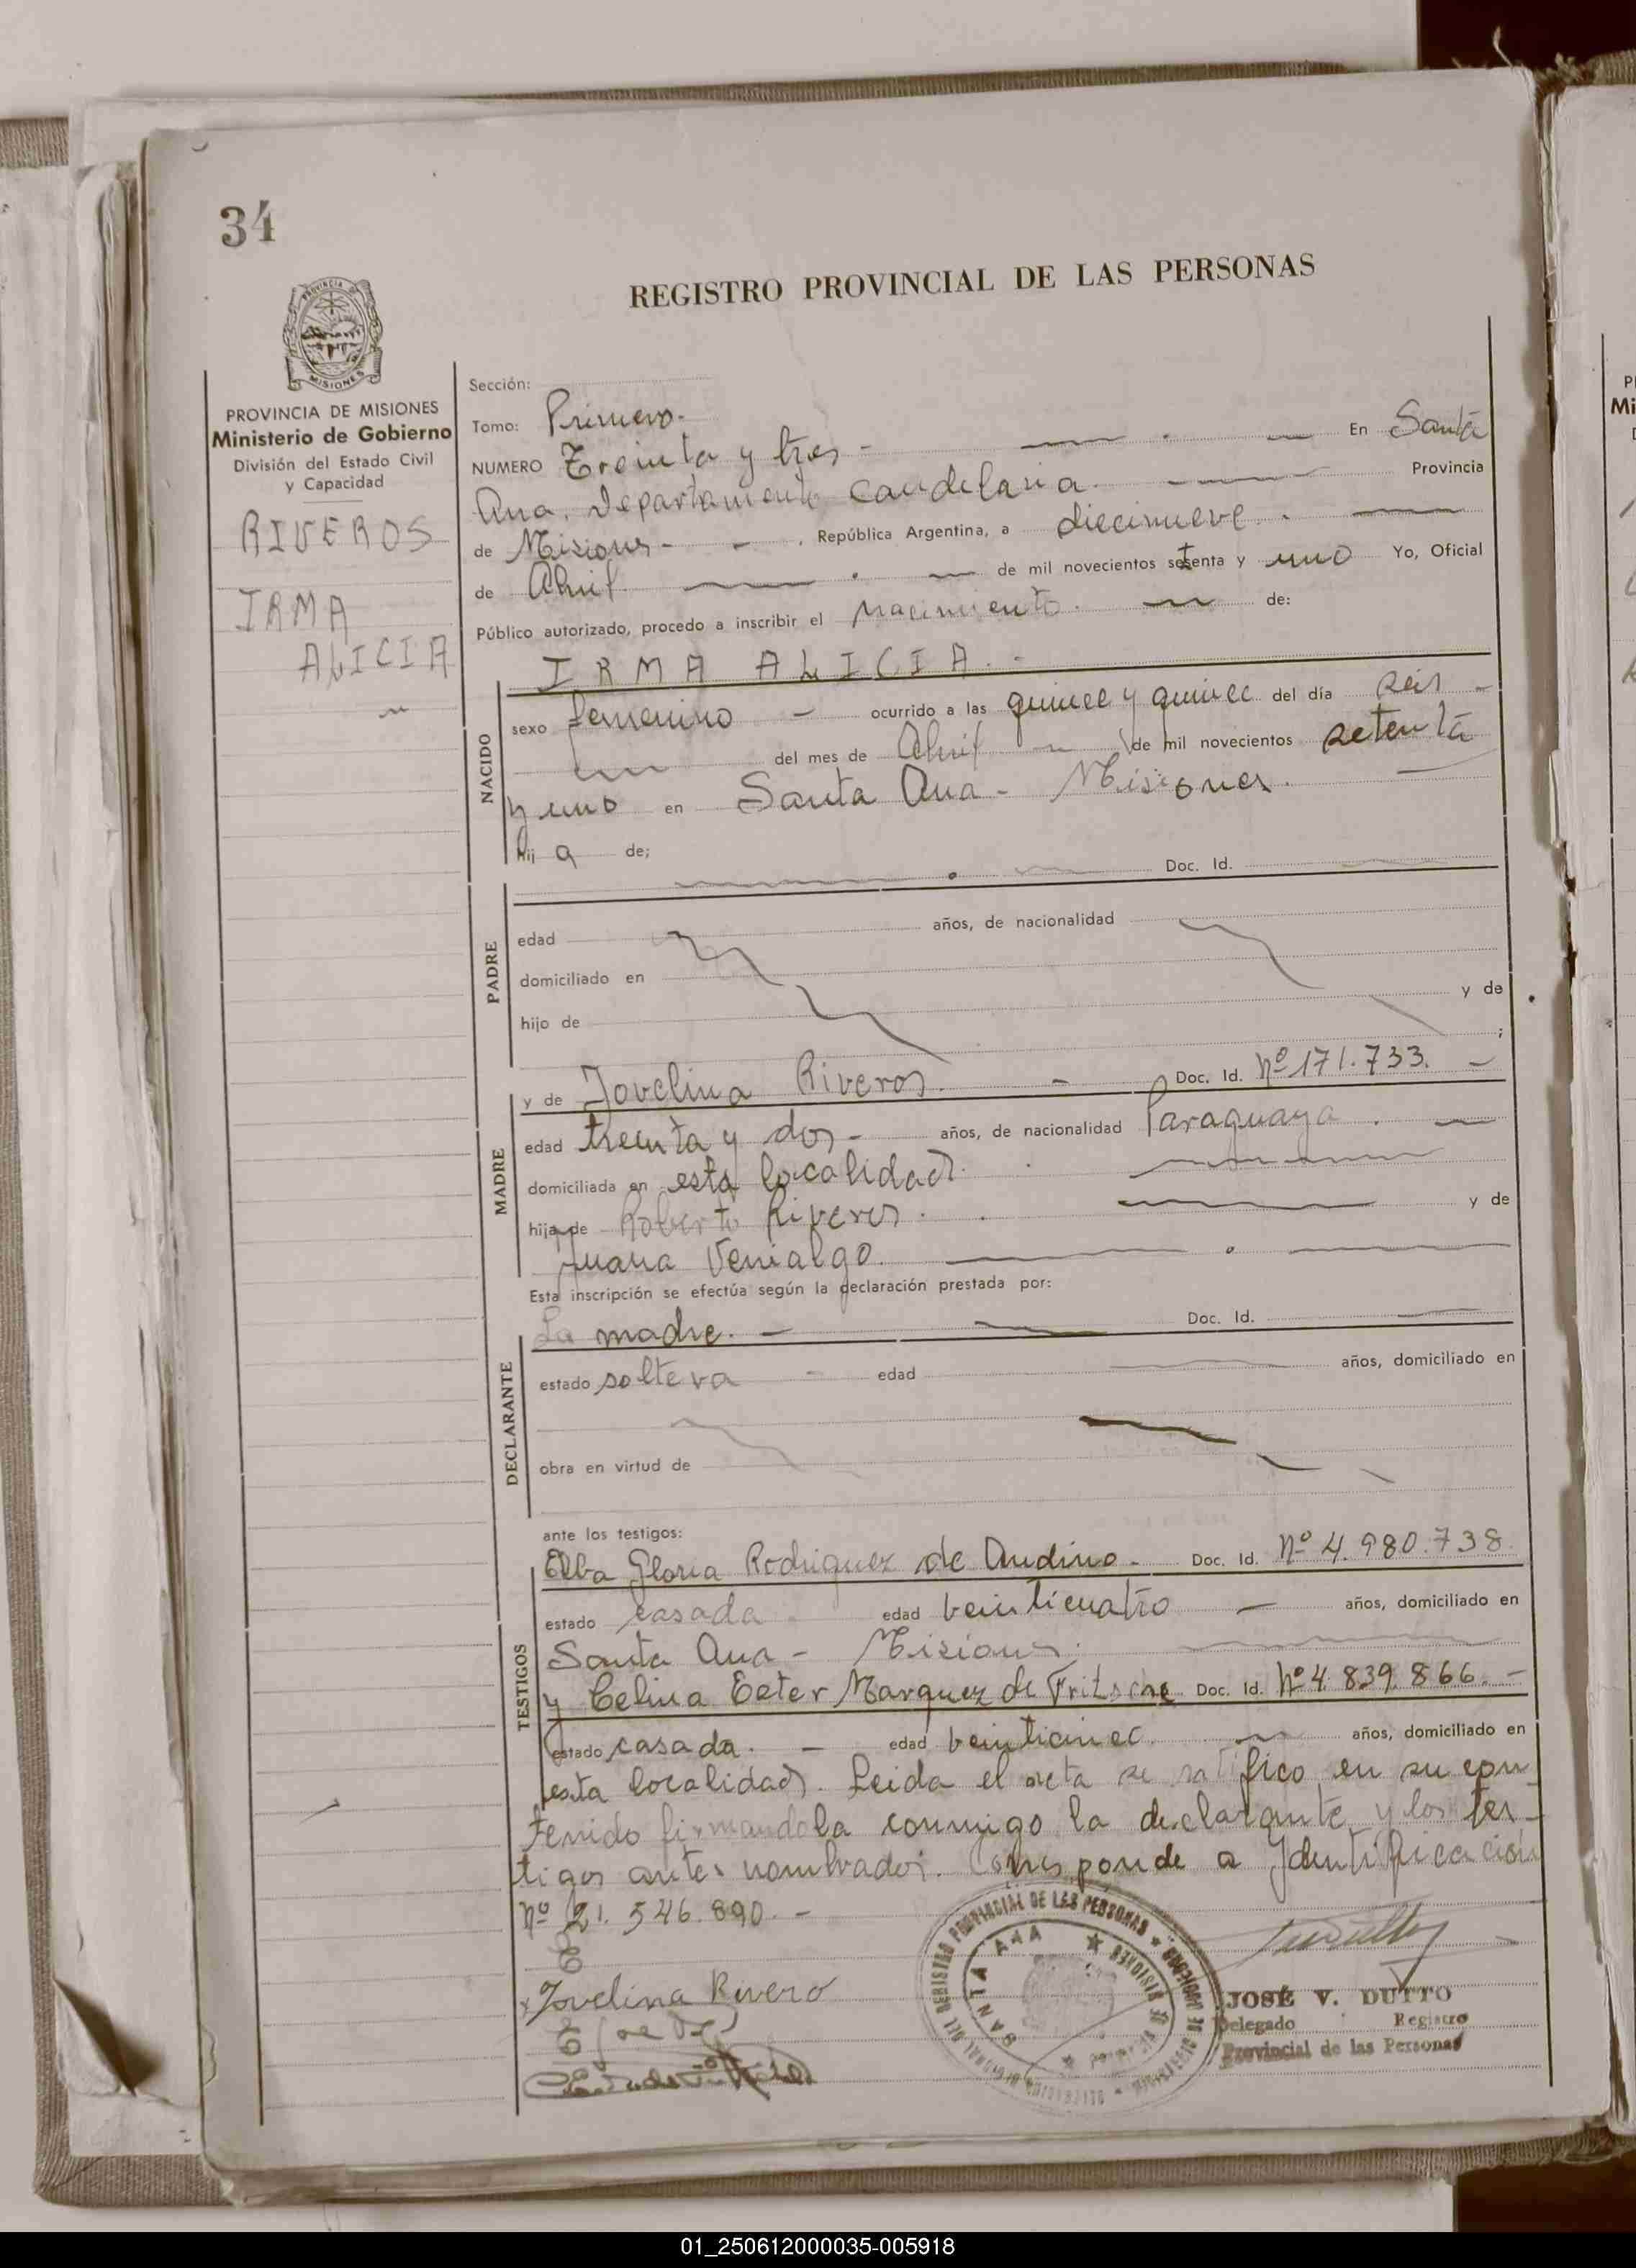 34
REGISTRO PROVINCIAL DE LAS PERSONAS
PROVINCIA DE MISIONES
Ministerio de Gobierno
División del Estado Civil
y Capacidad
RIVEROS
IRMA
ALICIA
Sección:
Tomo: Primero.-
NUMERO Treinta y tres - En Santa
Ana. Departamento Candelaria. Provincia
de Misiones - - . República Argentina, a diecinueve.
de Abril. de mil novecientos setenta y uno Yo, Oficial
Público autorizado, procedo a inscribir el nacimiento. de:
IRMA ALICIA.-
NACIDO
sexo femenino - ocurrido a las quince y quince del día seis -
del mes de Abril de mil novecientos setenta
y uno en Santa Ana - Misiones.
hij a de;
Doc. Id.
PADRE
edad años, de nacionalidad
domiciliado en
hijo de y de
;
MADRE
y de Jovelina Riveros. - Doc. Id. Nº 171.733. -
edad treinta y dos - años, de nacionalidad Paraguaya.
domiciliada en esta localidad.
hija de Roberto Riveros. y de
Juana Venialgo.
Esta inscripción se efectúa según la declaración prestada por:
DECLARANTE
La madre. - Doc. Id.
estado soltera - edad años, domiciliado en
obra en virtud de
ante los testigos:
TESTIGOS
Elba Gloria Rodriguez de Andino - Doc. Id. Nº 4.980.738.
estado casada edad beinticuatro - años, domiciliado en
Santa Ana - Misiones.
y Celina Ester Marquez de Fritsche Doc. Id. Nº 4.839.866. -
estado casada. - edad beinticinco años, domiciliado en
esta localidad. Leida el acta se ratifico en su con
tenido firmandola conmigo la declarante y los tes-
tigos antes nombrados. Corresponde a Identificación
Nº 21.546.890.-
x Jovelina Rivero
REGISTRO PROVINCIAL DE LAS PERSONAS
SANTA ANA
JOSÉ V. DUTTO
Delegado Registro
Provincial de las Personas
01_250612000035-005918